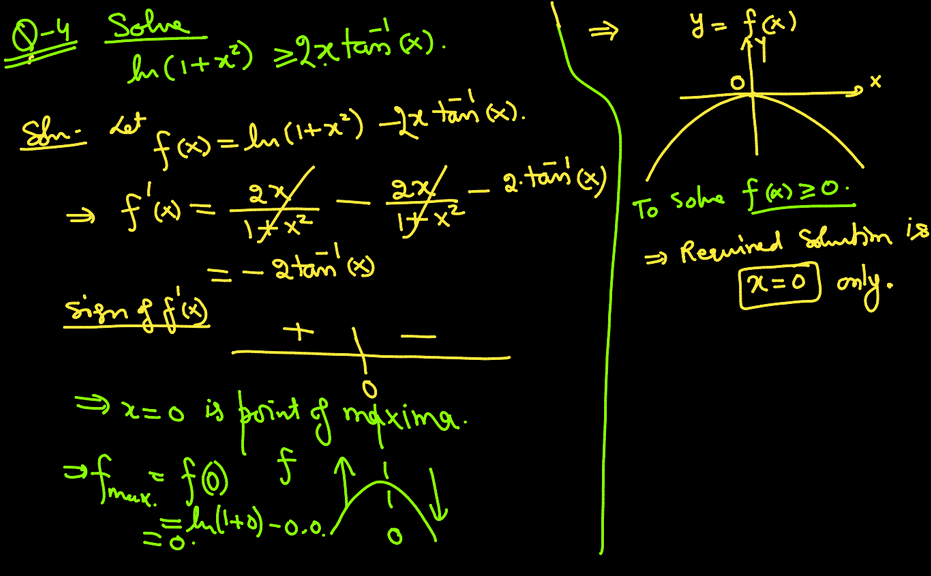 Q-4 Solve
ln(1+x²) ≥ 2x tan⁻¹(x).
Soln:- Let
f(x) = ln(1+x²) - 2x tan⁻¹(x).
⇒ f'(x) = 2x/(1+x²) - 2x/(1+x²) - 2·tan⁻¹(x)
= - 2tan⁻¹(x)
Sign of f'(x)
+ -
0
⇒ x=0 is point of maxima.
⇒ f max. = f(0)
= ln(1+0) - 0.0.
= 0.
f
0
⇒ y = f(x)
Y
O
x
To solve f(x) ≥ 0.
⇒ Required Solution is
x=0 only.